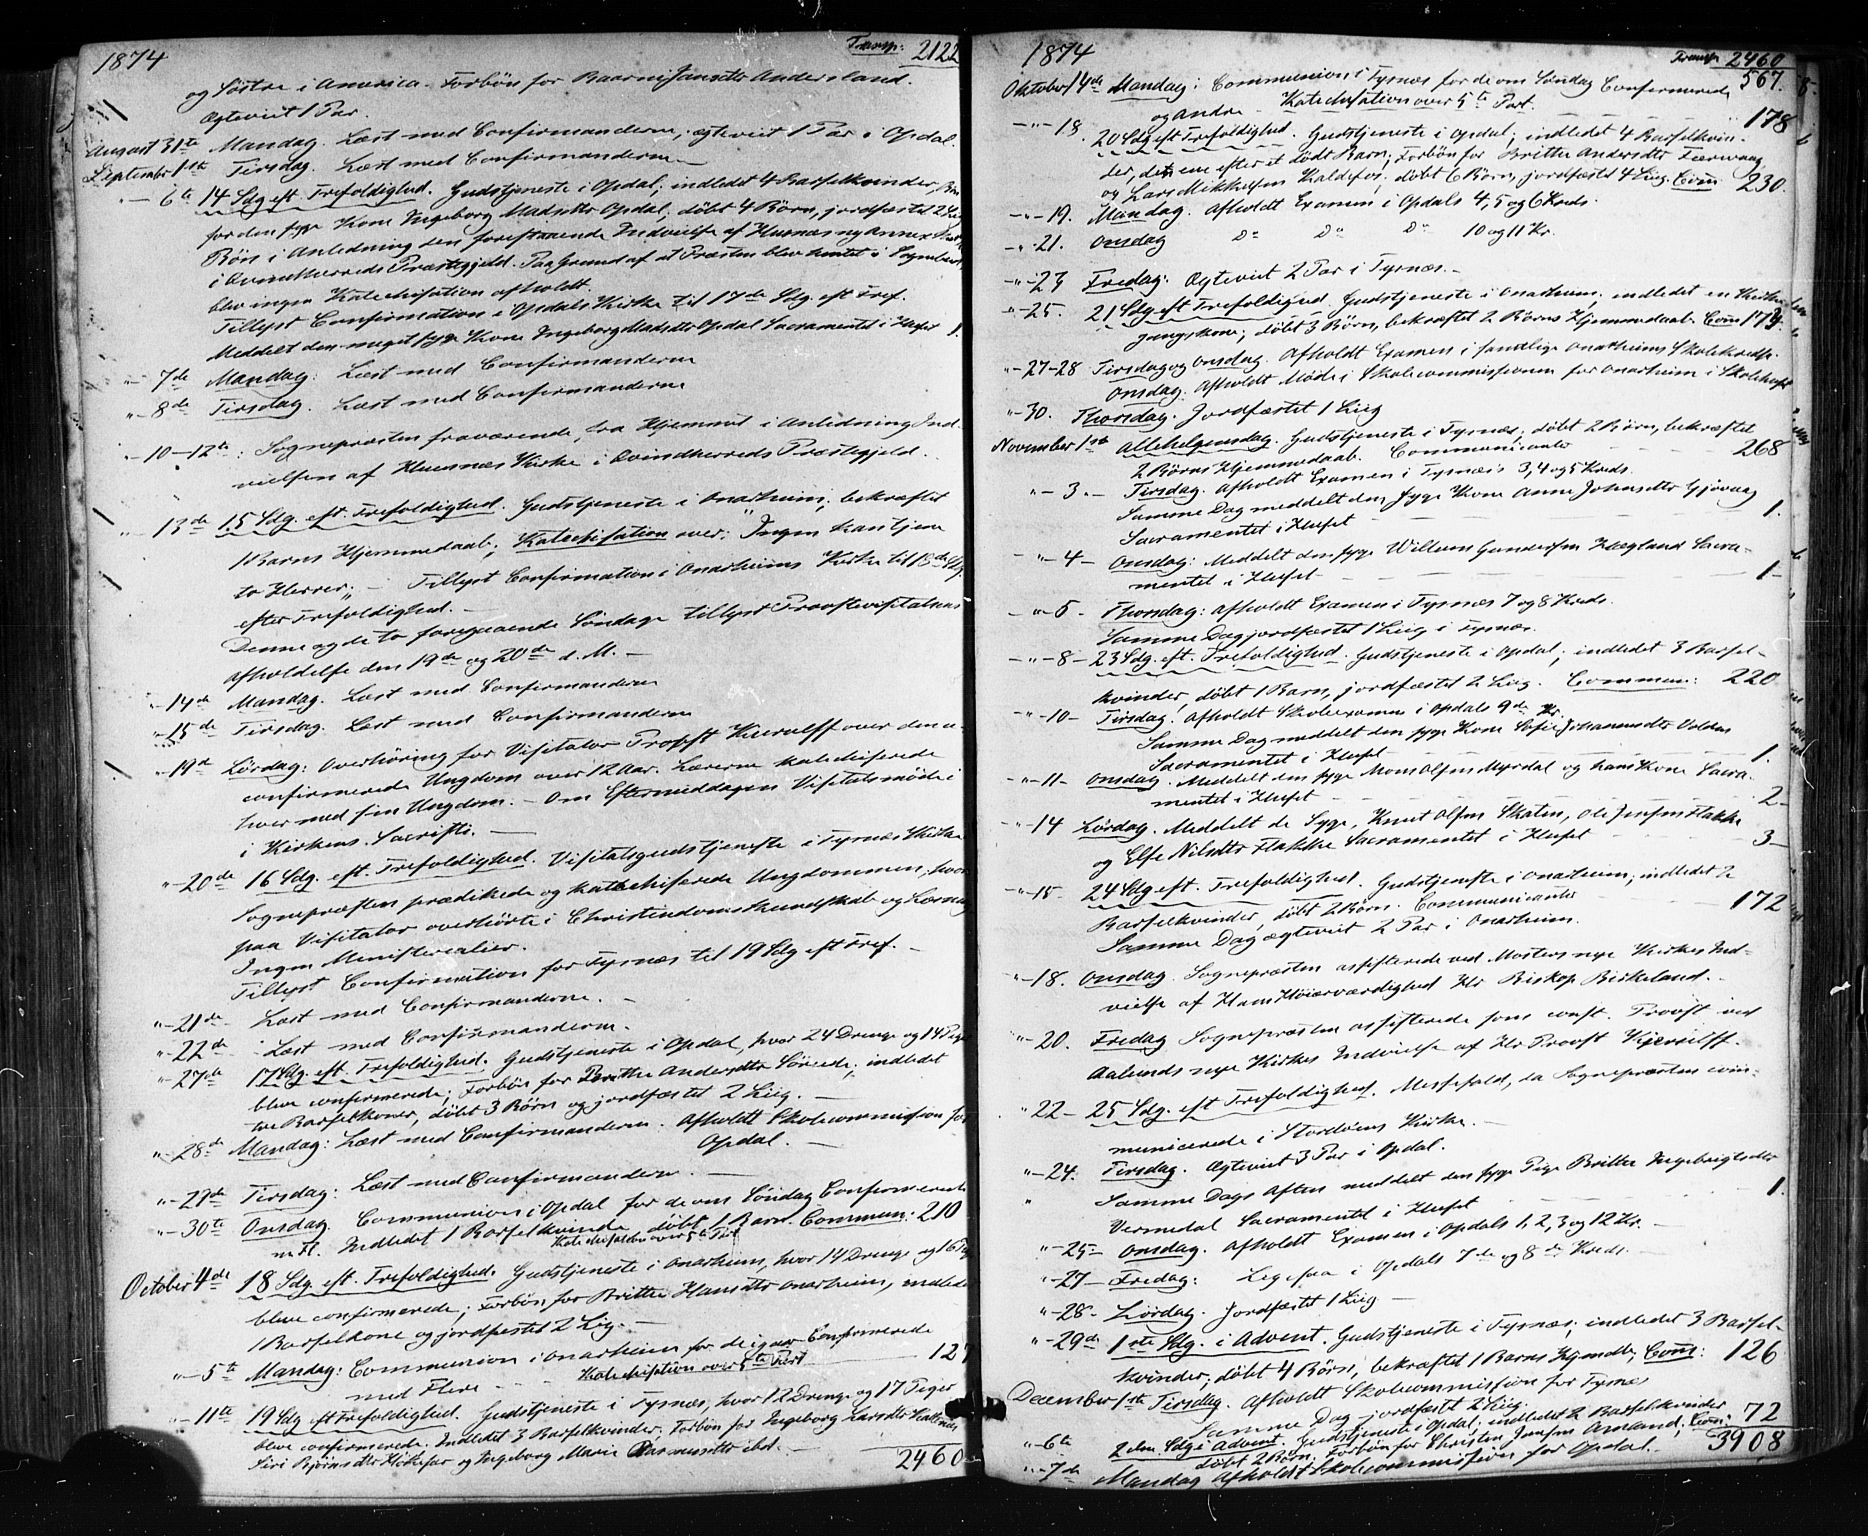 1874 Transp: 2122
og Søstre i America. Forbøn for Baarni Jansdtr Andersland.
Ægteviet 1 Par.
August 31te Mandag. Læst med Confirmanderne, ægteviet 1 Par i Opdal.
September 1ste Tirsdag. Læst med Confirmanderne
-"- 6te 14 Sdg. eft. Trefoldighed. Gudstjeneste i Opdal; indledet 4 Barselkvinder,
for den syge Kone Ingeborg Madsdtr Opdal, døbt 4 Børn, jordfæstet 2
Bøn i Anledning den forestaaende Indvielse af Husnæs ny Annex
i Qvindherreds Præstegjeld. Paa Grund af at Præsten blev hentet i Sognebud,
blev ingen Katechisation afholdt.
Tillyst Confirmation i Opdals Kirke til 17de Sdg. eft. Tref.
Meddelt den meget syge Kone Ingeborg Madsdtr Opdal Sacramentet i Huset 1.
"- 7de Mandag. Læst med Confirmanderne
"- 8de Tirsdag. Læst med Confirmanderne
"- 10-12te: Sognepræsten fraværende fra Hjemmet i Anledning Ind-
vielsen af Husnæs Kirke i Qvindherreds Præstegjeld.
"- 13de 15 Sdg. eft. Trefoldighed. Gudstjeneste i Onarheim; bekræftet
1 Barns Hjemmedaab; Katechisation over: "Ingen kan tjene
to Herrer"; – Tillyst Confirmation i Onarheims Kirke til 18de Sdg.
efter Trefoldighed. –
Denne og de to foregaaende Søndage tillyst Provstevisitatsens
afholdelse den 19de og 20de d. M. –
"- 14de Mandag. Læst med Confirmanderne
"- 15de Tirsdag. Læst med Confirmanderne
"- 19de Lördag: Overhøring for Visitator Provst over den u-
confirmerede Ungdom over 12 Aar. Lærerne katechiserede
hver med sin Ungdom. – Om Eftermiddagen Visitatsmöde i
i Kirkens Sacristi. –
"- 20de 16 Sdg. eft. Trefoldighed. Visitatsgudstjeneste i Tysnæs Kirke
Sognepræsten prædikede og katechiserede Ungdommen, hvor
paa Visitator overhørte i Christendomskundskab og Læsning
Ingen Ministerialier.
Tillyst Confirmation for Tysnæs til 19 Sdg eft Tref. –
"- 21de Læst med Confirmanderne. –
"- 22de Læst med Confirmanderne.
"- 27de 17 Sdg. eft. Trefoldighed. Gudstjeneste i Opdal, hvor 24 Drenge og 14 Piger
bleve confirmerede; Forbøn for Brithe Andersdtr; indledet
to Barselkoner, døbt 3 Børn og jordfæstet 2 Liig. –
"- 28de Mandag: Læst med Confirmanderne. Afholdt Skolecommission for
Opdal. –
"- 29de Tirsdag: Læst med Confirmanderne. –
"- 30te Onsdag. Communion i Opdal for de om Søndag Confirmerede
m. Fl. Indledet 1 Barselkvinde, døbt 1 Barn. Commun: 210
Katechisation over 5te Part
October 4de 18 Sdg. eft. Trefoldighed. Gudstjeneste i Onarheim, hvor 14 Drenge og 16 Piger
bleve confirmerede; Forbøn for Brithe Hansdtr Onarheim, indledet
1 Barselkone og jordfæstet 2 Liig. –
"- 5te Mandag: Communion i Onarheim for de igaar Confirmerede
med Flere - Katechisation over 5te Part 127
"- 11te 19 Sdg eft Trefoldighed. Gudstjeneste i Tysnæs, hvor 12 Drenge og 17 Piger
bleve confirmerede. Indledet 3 Barselkvinder; Forbøn for Ingeborg Larsdtr
Siri Bjørnsdtr og Ingeborg Marie Rasmusdtr ibd. –
2460
1874 Transp. 2460
Oktober 14de Mandag: Communion i Tysnæs for de om Søndag Confirmerede 567.
og Andre - Katechisation over 5te Part.
-"- 18. 20 Sdg eft Trefoldighed. Gudstjeneste i Opdal; indledet 4 Barselkvin- 178
der, den ene efter et dødt Barn; Forbøn for Brithe Andersdtr
og Lars Mikkelsen, døbt 6 Børn, jordfæstet 4 Liig. Com 230.
-"- 19. Mandag. Afholdt Examen i Opdals 4, 5 og 6 Kreds.
-"- 21. Onsdag Do Do Do 10 og 11 Kr.
-"- 23 Fredag: Ægteviet 2 Par i Tysnæs. –
-"- 25. 21 Sdg. eft Trefoldighed. Gudstjeneste i Onarheim; indledet en Kirke-
gangskone; døbt 3 Børn, bekræftet 2 Børns Hjemmedaab. Com 174
"- 27-28 Tirsdag og Onsdag. Afholdt Examen i samtlige Onarheims Skolekredse.
Onsdag: Afholdt Møde i Skolecommissionen for Onarheim i Skolehuset
"- 30. Thorsdag. Jordfæstet 1 Liig
November 1ste Allehelgensdag. Gudstjeneste i Tysnæs, døbt 2 Børn, bekræftet
2 Børns Hjemmedaab. Communicanter 268
"- 3 "- Tirsdag. Afholdt Examen i Tysnæs 3, 4 og 5 Kreds.
Samme Dag meddelt den syge Kone Anne Johnsdtr Gjøvaag
Sacramentet i Huset - 1.
-"- 4 - Onsdag: Meddelt den syge Willum Gundersen Hægland Sacra-
mentet i Huset - 1 -
-"- 5 - Thorsdag: Afholdt Examen i Tysnæs 7 og 8 Kreds.
Samme Dag jordfæstet 1 Liig i Tysnæs.
-"- 8 - 23 Sdg. eft. Trefoldighed. Gudstjeneste i Opdal; indledet 3 Barsel-
kvinder, døbt 1 Barn, jordfæstet 2 Liig. Commun: 220
-"- 10 - Tirsdag. Afholdt Skoleexamen i Opdals 9de Kr.
Samme Dag meddelt den syge Kone Sofie Johannesdtr
Sacramentet i Huset 1.
-"- 11 - Onsdag. Meddelt den syge Mons Olsen Myrdal og hans Kone Sacra-
mentet i Huset 2 -
"- 14 Lördag. Meddelt de Syge, Knut Olsen Skaten, Ole Jensen Flakke
og Else Nilsdtr Flakke Sacramentet i Huset 3 -
"- 15 24 Sdg eft. Trefoldighed. Gudstjeneste i Onarheim; indledet 2
Barselkvinder, døbt 2 Børn. Communicanter 172
Samme Dag ægteviet 2 Par i Onarheim.
"- 18. Onsdag. Sognepræsten assisterede ved Mosters nye Kirkes Ind-
vielse af Hans Höiærværdighed Hr Biskop Birkeland. –
"- 20. Fredag Sognepræsten assisterede som const. Provst ved
Aalunds nye Kirkes Indvielse af Hr Provst
"22 - 25 Sdg. eft Trefoldighed. Messefald, da Sognepræsten com-
municerede i Stordøens Kirke. –
"- 24. Tirsdag. Ægteviet 3 Par i Opdal.
" Samme Dags Aften meddelt den syge Pige Brithe Ingebrigtsdtr
Vermedal Sacramentet i Huset 1.
"- 25 - Onsdag. Afholdt Examen i Opdals 1, 2, 3 og 12 Kr. –
"- 27 - Fredag: Ligesaa i Opdals 7de og 8de Kreds. –
"- 28. Lørdag. Jordfæstet 1 Liig –
"- 29de 1ste Sdg. i Advent. Gudstjeneste i Tysnæs; indledet 3 Barsel-
kvinder, døbt 4 Børn, bekræftet 1 Barns Hjemdb; Com: 126
December 1ste Tirsdag. Afholdt Skolecommission for Tysnæs
Samme Dag jordfæstet 2 Liig.
"- 6te 2den Sdg i Advent. Gudstjeneste i Opdal, indledet 2 Barselkvinder
døbt 2 Børn. Forbøn for Christen Jensen; Com: 72
"- 7de Mandag Afholdt Skolecommission for Opdal. 3908